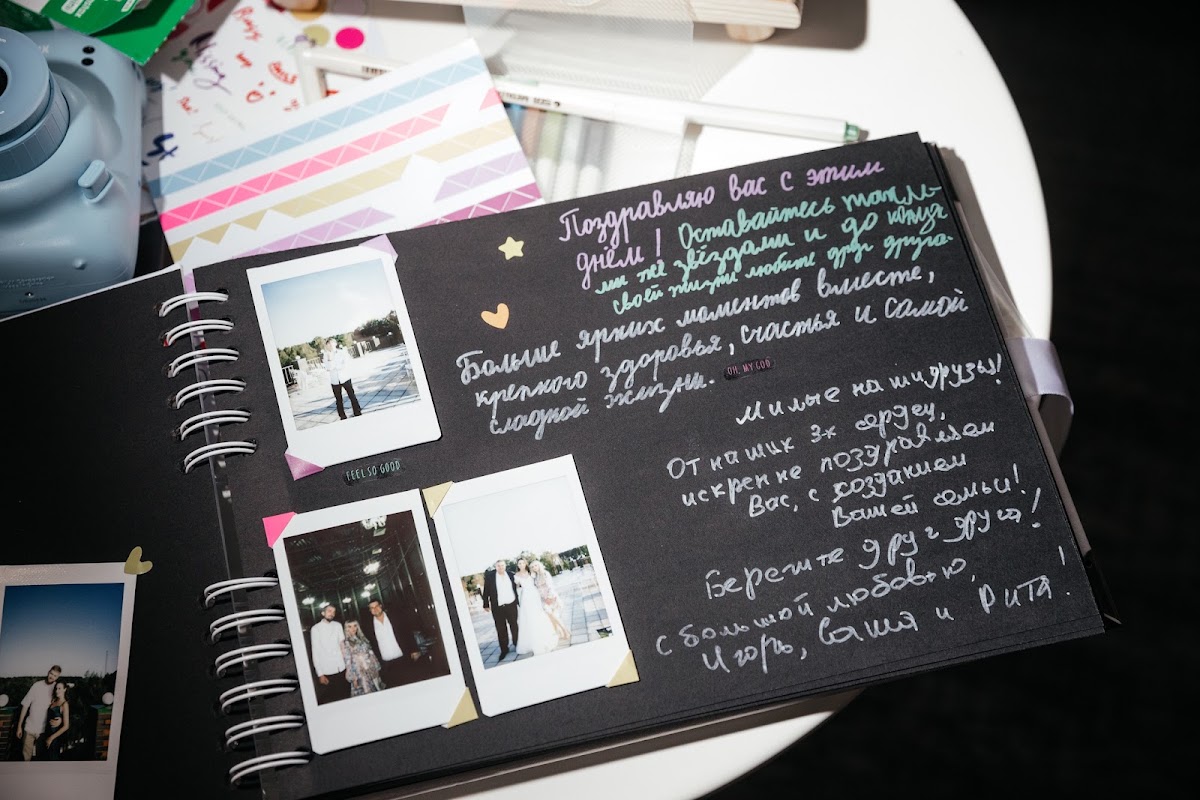 Поздравляю вас с этим
днём! Оставайтесь такими
же звёздами и до конца
своей жизни любите друг друга.
Больше ярких моментов вместе,
крепкого здоровья, счастья и самой
сладкой жизни.
OH, MY GOD
FEEL SO GOOD
Милые наши друзья!
От наших 3х сердец,
искренне поздравляем
Вас, с созданием
Вашей семьи!
Берегите друг друга!
с большой любовью,
Игорь, Саша и Рита!